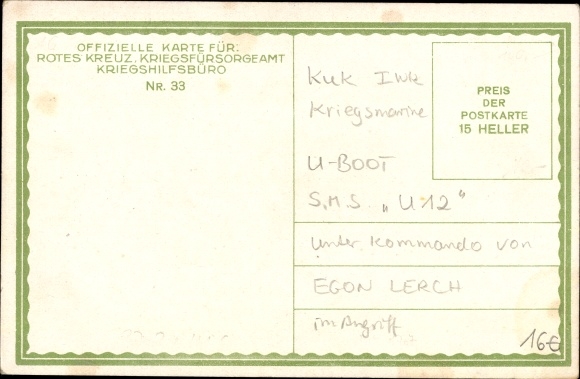 OFFIZIELLE KARTE FÜR:
ROTES KREUZ, KRIEGSFÜRSORGEAMT
KRIEGSHILFSBÜRO
NR. 33
KuK IWK
Kriegsmarine
U-BOOT
S.M.S „U12"
unter Kommando von
EGON LERCH
im Angriff
PREIS
DER
POSTKARTE
15 HELLER
16€